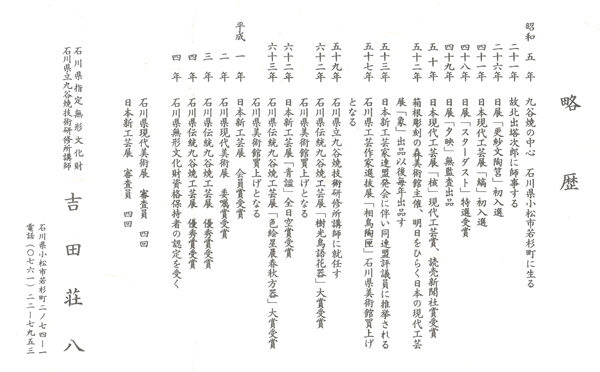 略歴
昭和 五 年 九谷焼の中心 石川県小松市若杉町に生る
二十一年 故北出塔次郎に師事する
二十六年 日展「更紗文陶筥」初入選
四十一年 日本現代工芸展「縞」初入選
四十八年 日展「スターダスト」特選受賞
四十九年 日展「夕映」無監査出品
五 十 年 日本現代工芸展「核」現代工芸賞、読売新聞社賞受賞
五十二年 箱根彫刻の森美術館主催、明日をひらく日本の現代工芸
展「象」出品以後毎年出品す
五十三年 日本新工芸家連盟発会に伴い同連盟評議員に推挙される
五十七年 石川県工芸作家選抜展「相鳥陶匣」石川県美術館買上げ
となる
五十九年 石川県立九谷焼技術研修所講師に就任す
六十二年 石川県伝統九谷焼工芸展「樹光鳥語花器」大賞受賞
石川県美術館買上げとなる
六十二年 日本新工芸展「青謐」全日空賞受賞
六十三年 石川県伝統九谷焼工芸展「色絵星辰春秋方器」大賞受賞
石川県美術館買上げとなる
平成 一 年 日本新工芸展 会員賞受賞
二 年 石川県現代美術展 委嘱賞受賞
三 年 石川県伝統九谷焼工芸展 優秀賞受賞
四 年 石川県伝統九谷焼工芸展 優秀賞受賞
四 年 石川県無形文化財資格保持者の認定を受く
石川県現代美術展 審査員 四回
日本新工芸展 審査員 四回
石川県指定無形文化財
石川県立九谷焼技術研修所講師
吉田荘八
石川県小松市若杉町二ノ七四ー一
電話(〇七六一)二二ー七九五三